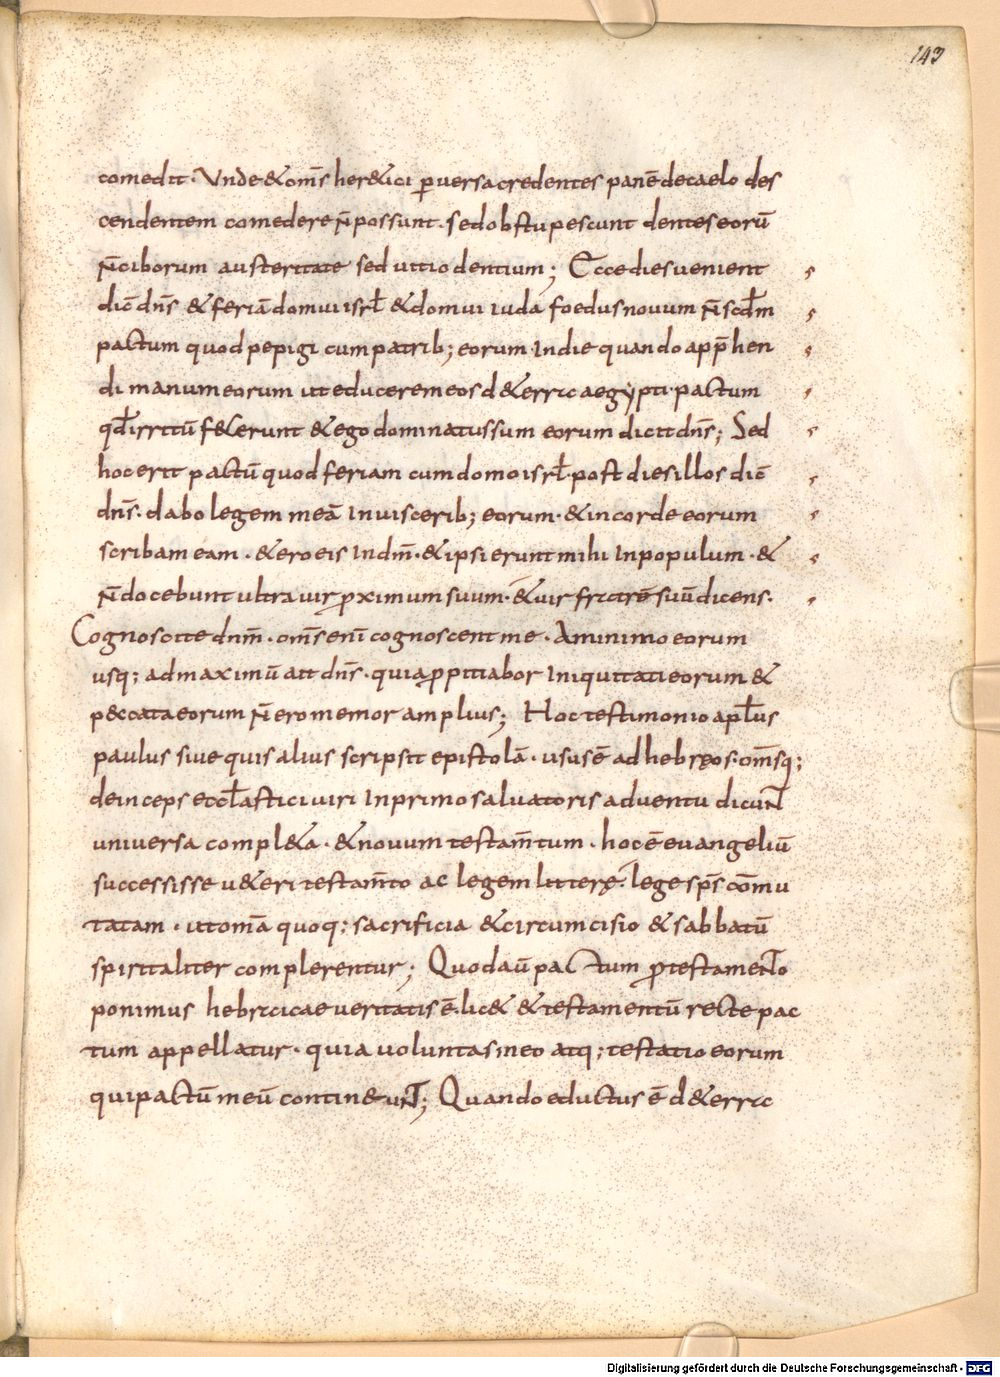 143
comedit · Vnde & om̄s her&ici ꝑversa credentes panē de caelo des
cendentem comedere n̄ possunt · sed obstupescunt dentes eorū
n̄ ciborum austeritate sed vitio dentium; Ecce dies venient
dic̄ dn̄s & feriā domui isrł & domui iuda foedus novum n̄ scdm̄
pactum quod pepigi cum patrib; eorum In die quando app̄hen
di manum eorum ut educerem eos d& erra aegypti · pactum
qđ irritū fecerunt & ego dominatus sum eorum dicit dn̄s; Sed
hoc erit pactū quod feriam cum domo isrł · post dies illos dic̄
dn̄s · dabo legem meā In viscerib; eorum · & in corde eorum
scribam eam · & ero eis In dm̄ · & ipsi erunt mihi In populum · &
n̄ docebunt ultra vir ꝓximum suum · & vir fratrē suū dicens ·
Cognoscite dnm̄ · om̄s enī cognoscent me · A minimo eorum
usq; ad maximū ait dn̄s · quia ꝓpitiabor Iniquitati eorum &
p&cata eorum n̄ ero memor amplius; Hoc testimonio aptłus
paulus sive quis alius scripsit epistolā · usus ē ad hebręos · om̄sq;
deinceps eccłastici viri In primo salvatoris adventu dicunt
universa compl&a · & novum testam̄tum · hoc ē evangeliū
successisse v&eri testam̄to ac legem litterę · lege sps̄ com̄u
tatam · ut omā quoq; sacrificia & circumcisio & sabbatū
spiritaliter complerentur; Quod aū pactum ꝓ testamento
ponimus hebraicae veritatis ē · lic& & testamentū recte pac
tum appellatur · quia voluntas In eo atq; testatio eorum
qui pactū meū contin&unt; Quando eductus ē d& erra
Digitalisierung gefördert durch die Deutsche Forschungsgemeinschaft - DFG